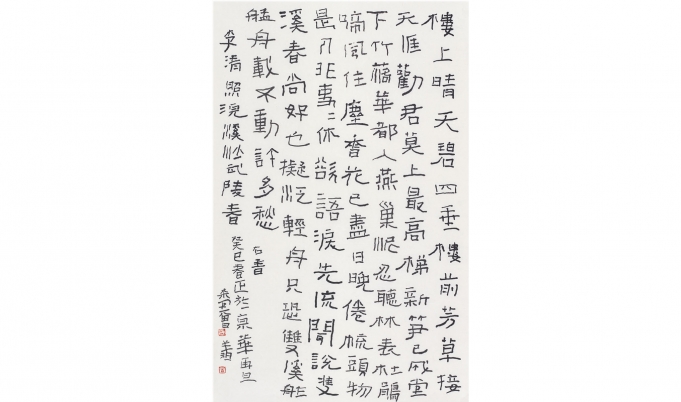 樓上晴天碧四垂樓前芳草接
天涯勸君莫上最高梯新筍已成堂
下竹落華都入燕巢泥忍聽林表杜鵑
啼風住塵香花已盡日晚倦梳頭物
是人非事〻休欲語淚先流聞說雙
溪春尚好也擬泛輕舟只恐雙溪舴
艋舟載不動許多愁
李清照浣溪沙武陵春
癸巳於京華